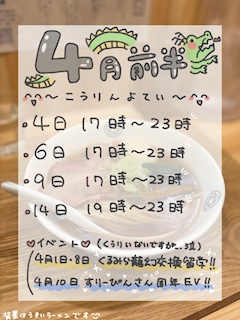 4月前半
～こうりんよてい～
・4日 17時～23時
・6日 17時～23時
・9日 17時～23時
・14日 19時～23時
♡イベント♡(くうりぃないですが…泣)
4月1日・8日 くるみから龍幻交換留学!!
4月10日 すりーぴんさん周年EV!!
背景はうまいラーメンです♡